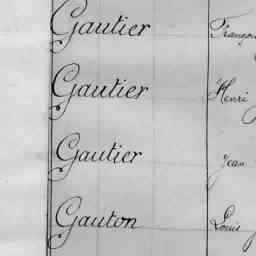 Gautier
Gautier Henri
Gautier Jean
Gauton Louis